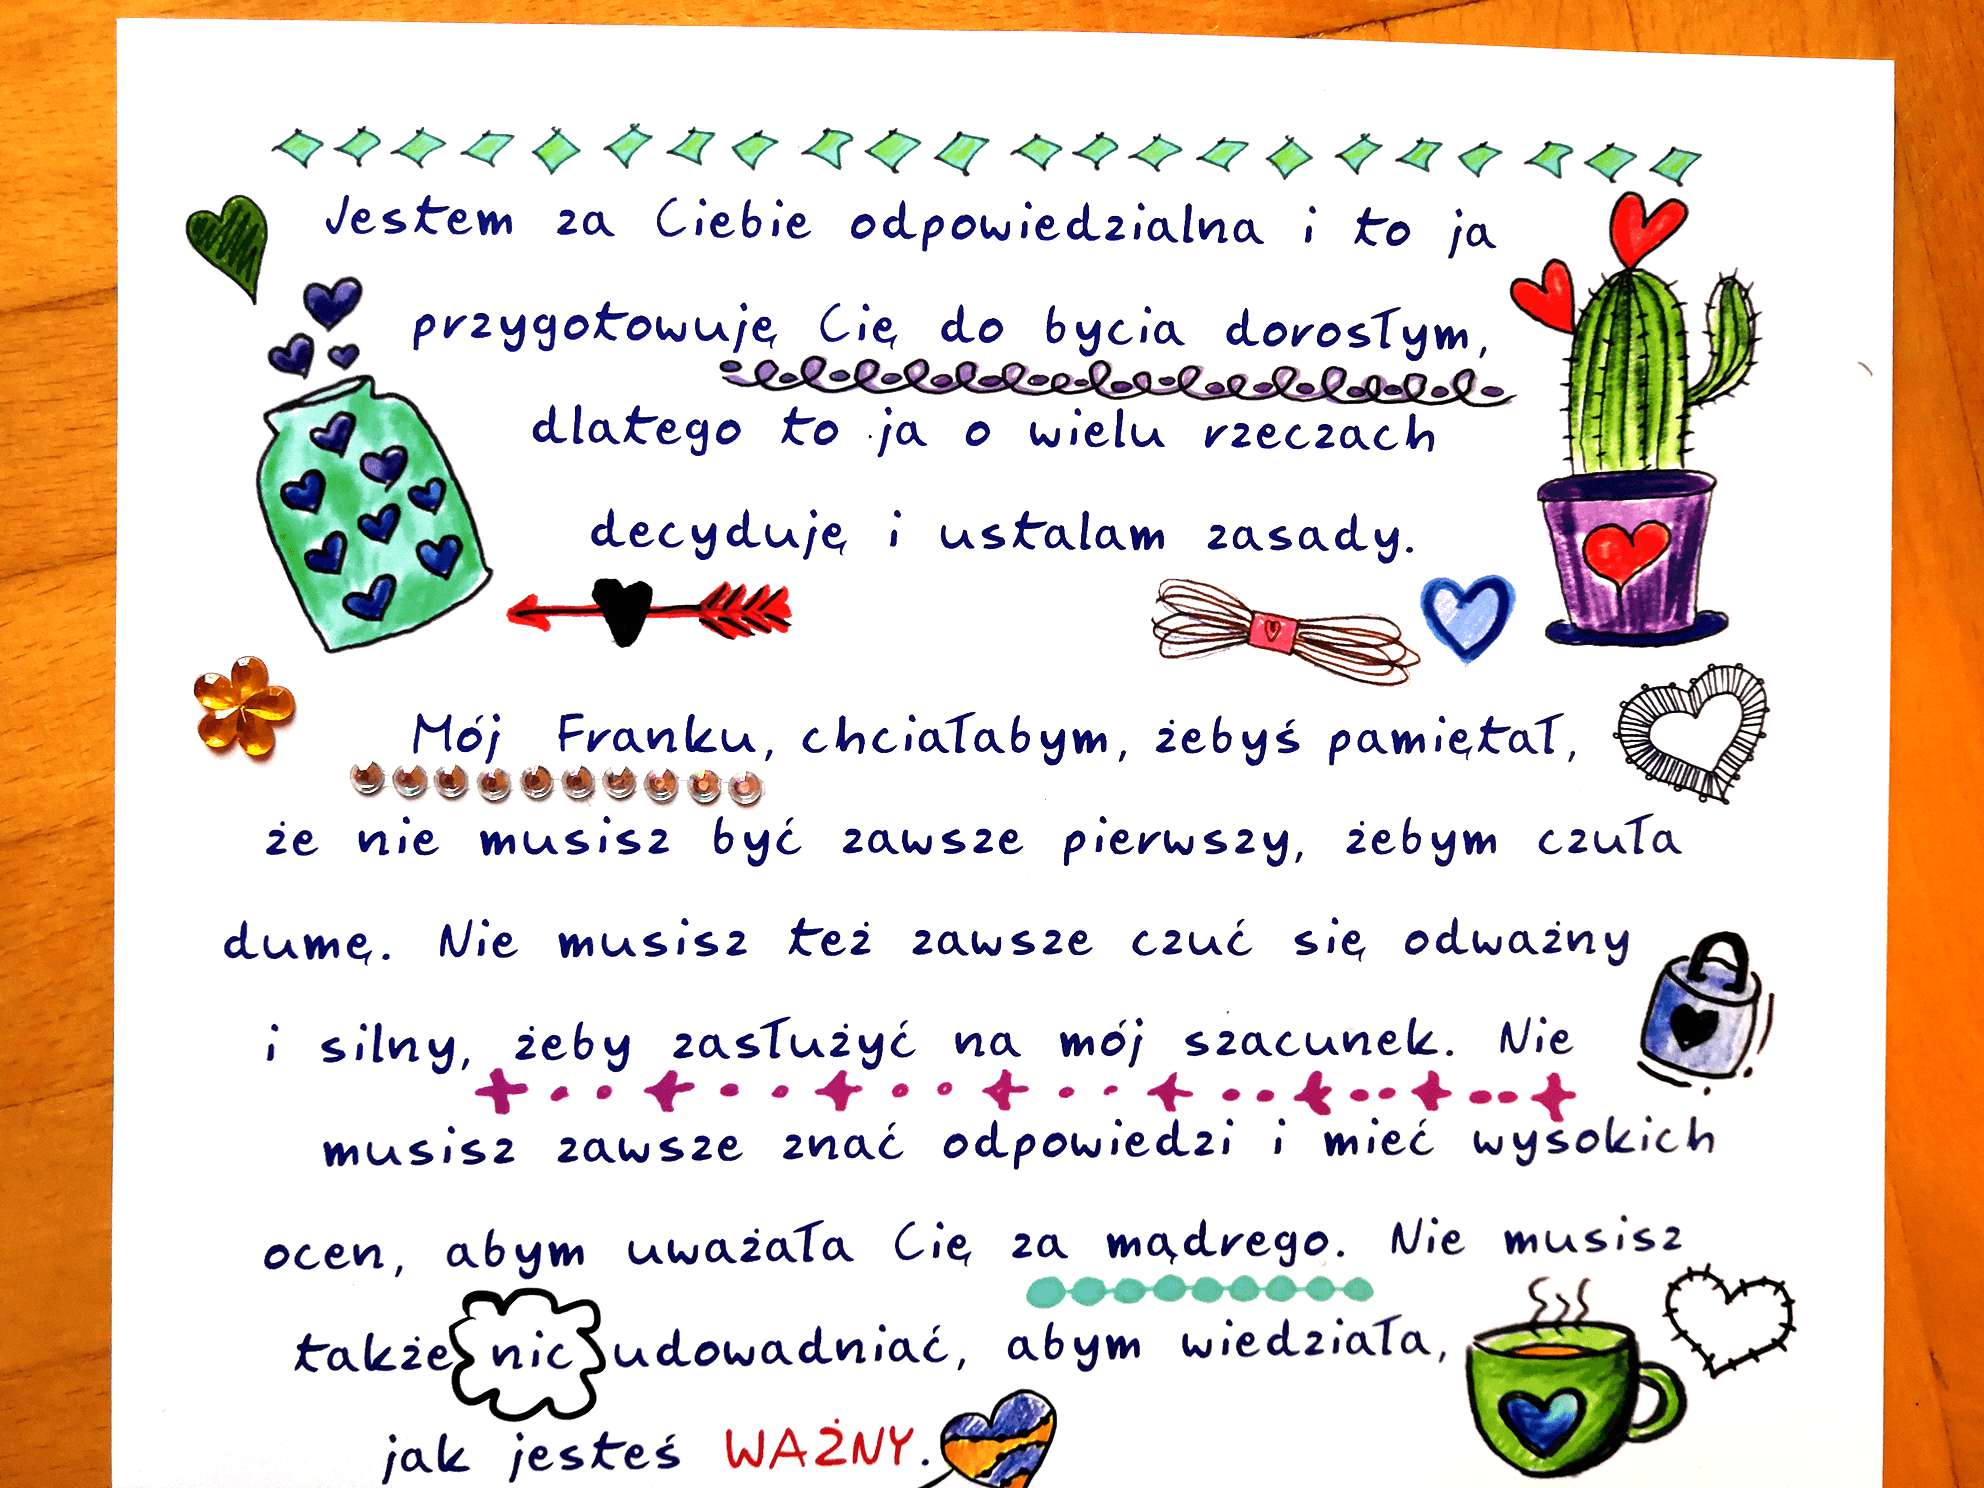 Jestem za Ciebie odpowiedzialna i to ja
przygotowuję Cię do bycia dorosłym,
dlatego to ja o wielu rzeczach
decyduję i ustalam zasady.
Mój Franku, chciałabym, żebyś pamiętał,
że nie musisz być zawsze pierwszy, żebym czuła
dumę. Nie musisz też zawsze czuć się odważny
i silny, żeby zasłużyć na mój szacunek. Nie
musisz zawsze znać odpowiedzi i mieć wysokich
ocen, abym uważała Cię za mądrego. Nie musisz
także nic udowadniać, abym wiedziała,
jak jesteś WAŻNY.